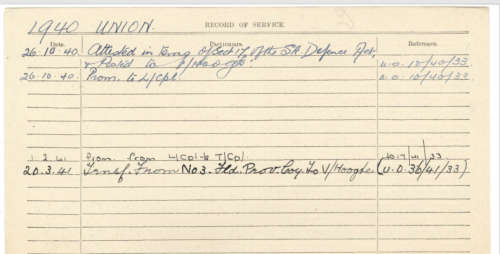 1940 UNION.
RECORD OF SERVICE.
Date. Particulars. Reference.
26.10.40. Attested in terms of Sect 17 of the S.A. Defence Act.
& Posted to V/Hooghte U.O. 10/40/33
26.10.40. Prom. to L/Cpl U.O. 10/40/33
1.2.41 Prom. from L/Cpl to T/Cpl 41/33
20.3.41 Transf. From No 3. Fld. Prov. Coy. to V/Hooghte. (U.O. 36/41/33)